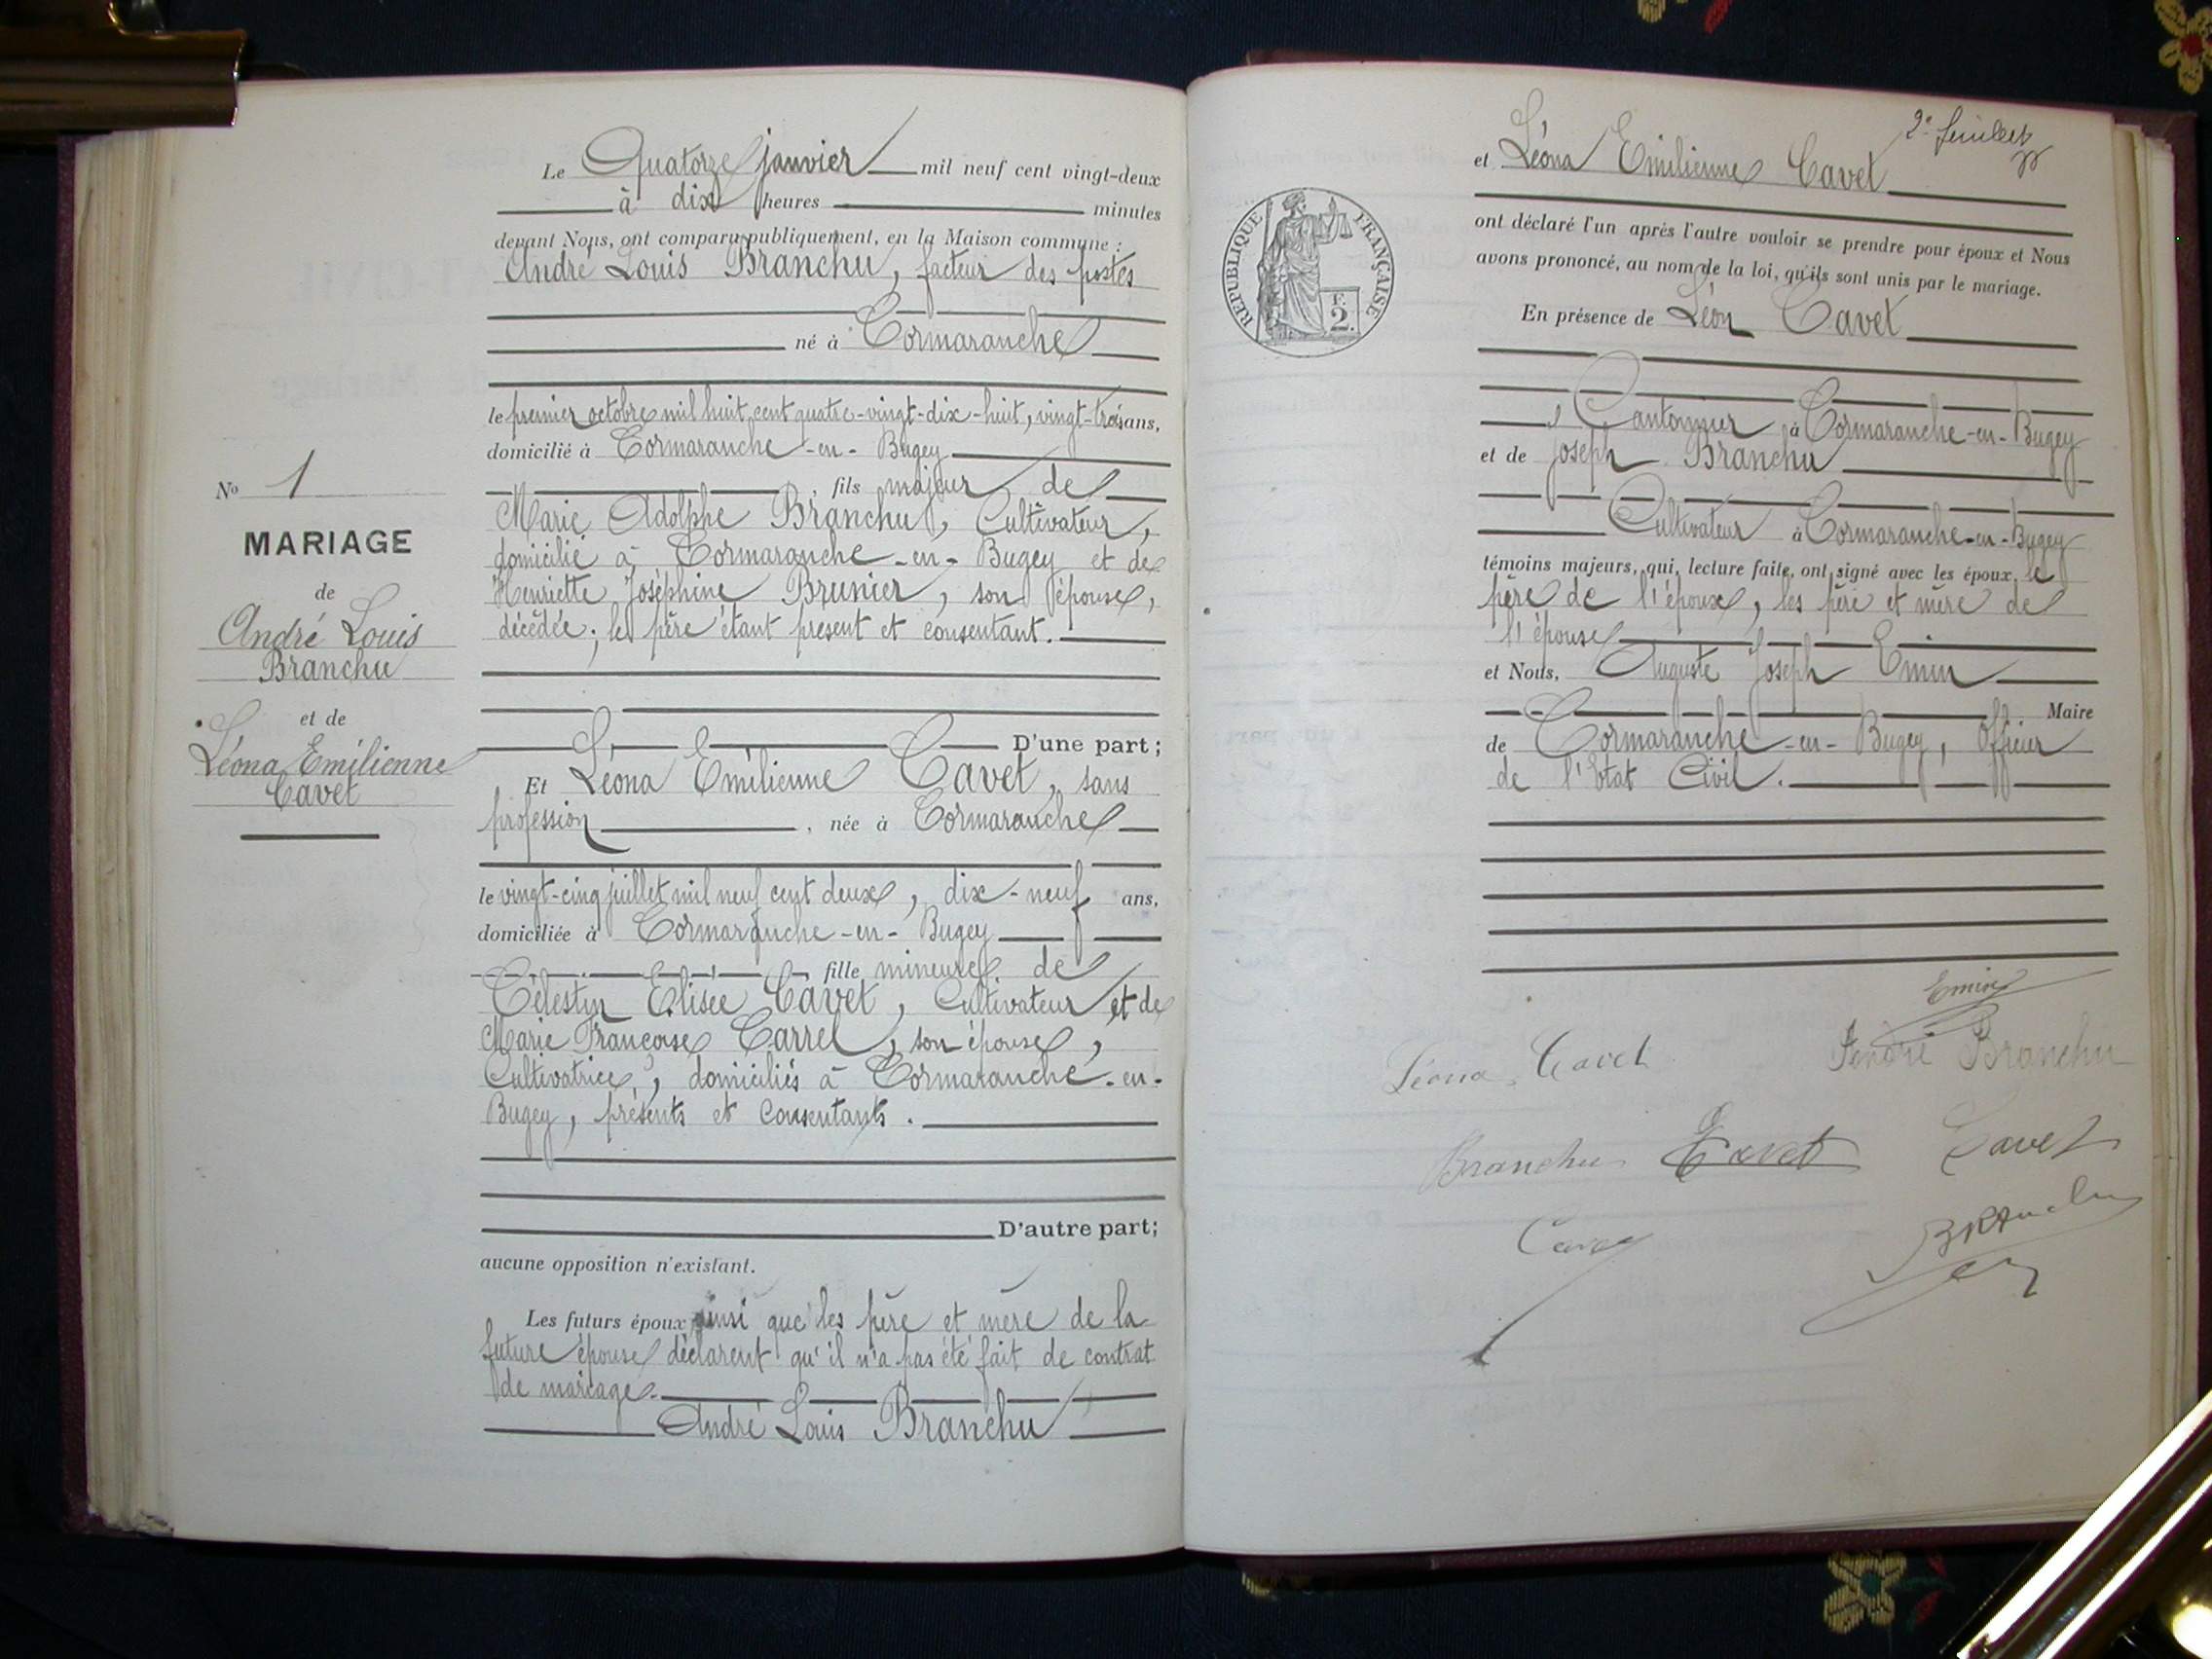 Le Quatorze janvier mil neuf cent vingt-deux
à dix heures minutes
devant Nous, ont comparu publiquement, en la Maison commune :
André Louis Branchu, facteur des postes
né à Cormaranche
le premier octobre mil huit cent quatre-vingt-dix-huit, vingt-trois ans,
domicilié à Cormaranche-en-Bugey
, fils majeur de
Marie Adolphe Branchu, Cultivateur,
domicilié à Cormaranche-en-Bugey et de
Henriette Joséphine Brunier, son épouse,
décédée; le père étant présent et consentant.
D'une part;
Et Léona Emilienne Cavet, sans
profession, née à Cormaranche
le vingt-cinq juillet mil neuf cent deux, dix-neuf ans,
domiciliée à Cormaranche-en-Bugey
, fille mineure de
Célestin Elisée Cavet, Cultivateur et de
Marie Françoise Carrel, son épouse,
Cultivatrice, domiciliés à Cormaranche-en-
Bugey, présents et consentants.
D'autre part;
aucune opposition n'existant.
Les futurs époux ainsi que les père et mère de la
future épouse déclarent qu'il n'a pas été fait de contrat
de mariage.
André Louis Branchu
No 1
MARIAGE
de
André Louis
Branchu
et de
Léona Emilienne
Cavet
2e feuillet
et Léona Emilienne Cavet
ont déclaré l'un après l'autre vouloir se prendre pour époux et Nous
avons prononcé, au nom de la loi, qu'ils sont unis par le mariage.
REPUBLIQUE FRANÇAISE
F.
2.
En présence de Léon Cavet
, Cantonnier à Cormaranche-en-Bugey
et de Joseph Branchu
Cultivateur à Cormaranche-en-Bugey
témoins majeurs, qui, lecture faite, ont signé avec les époux, le
père de l'époux, les père et mère de
l'épouse
et Nous, Auguste Joseph Emin
Maire
de Cormaranche-en-Bugey, Officier
de l'Etat Civil.
Emin
Léona Cavet André Branchu
Branchu Cavet Cavet
Cavet Branchu